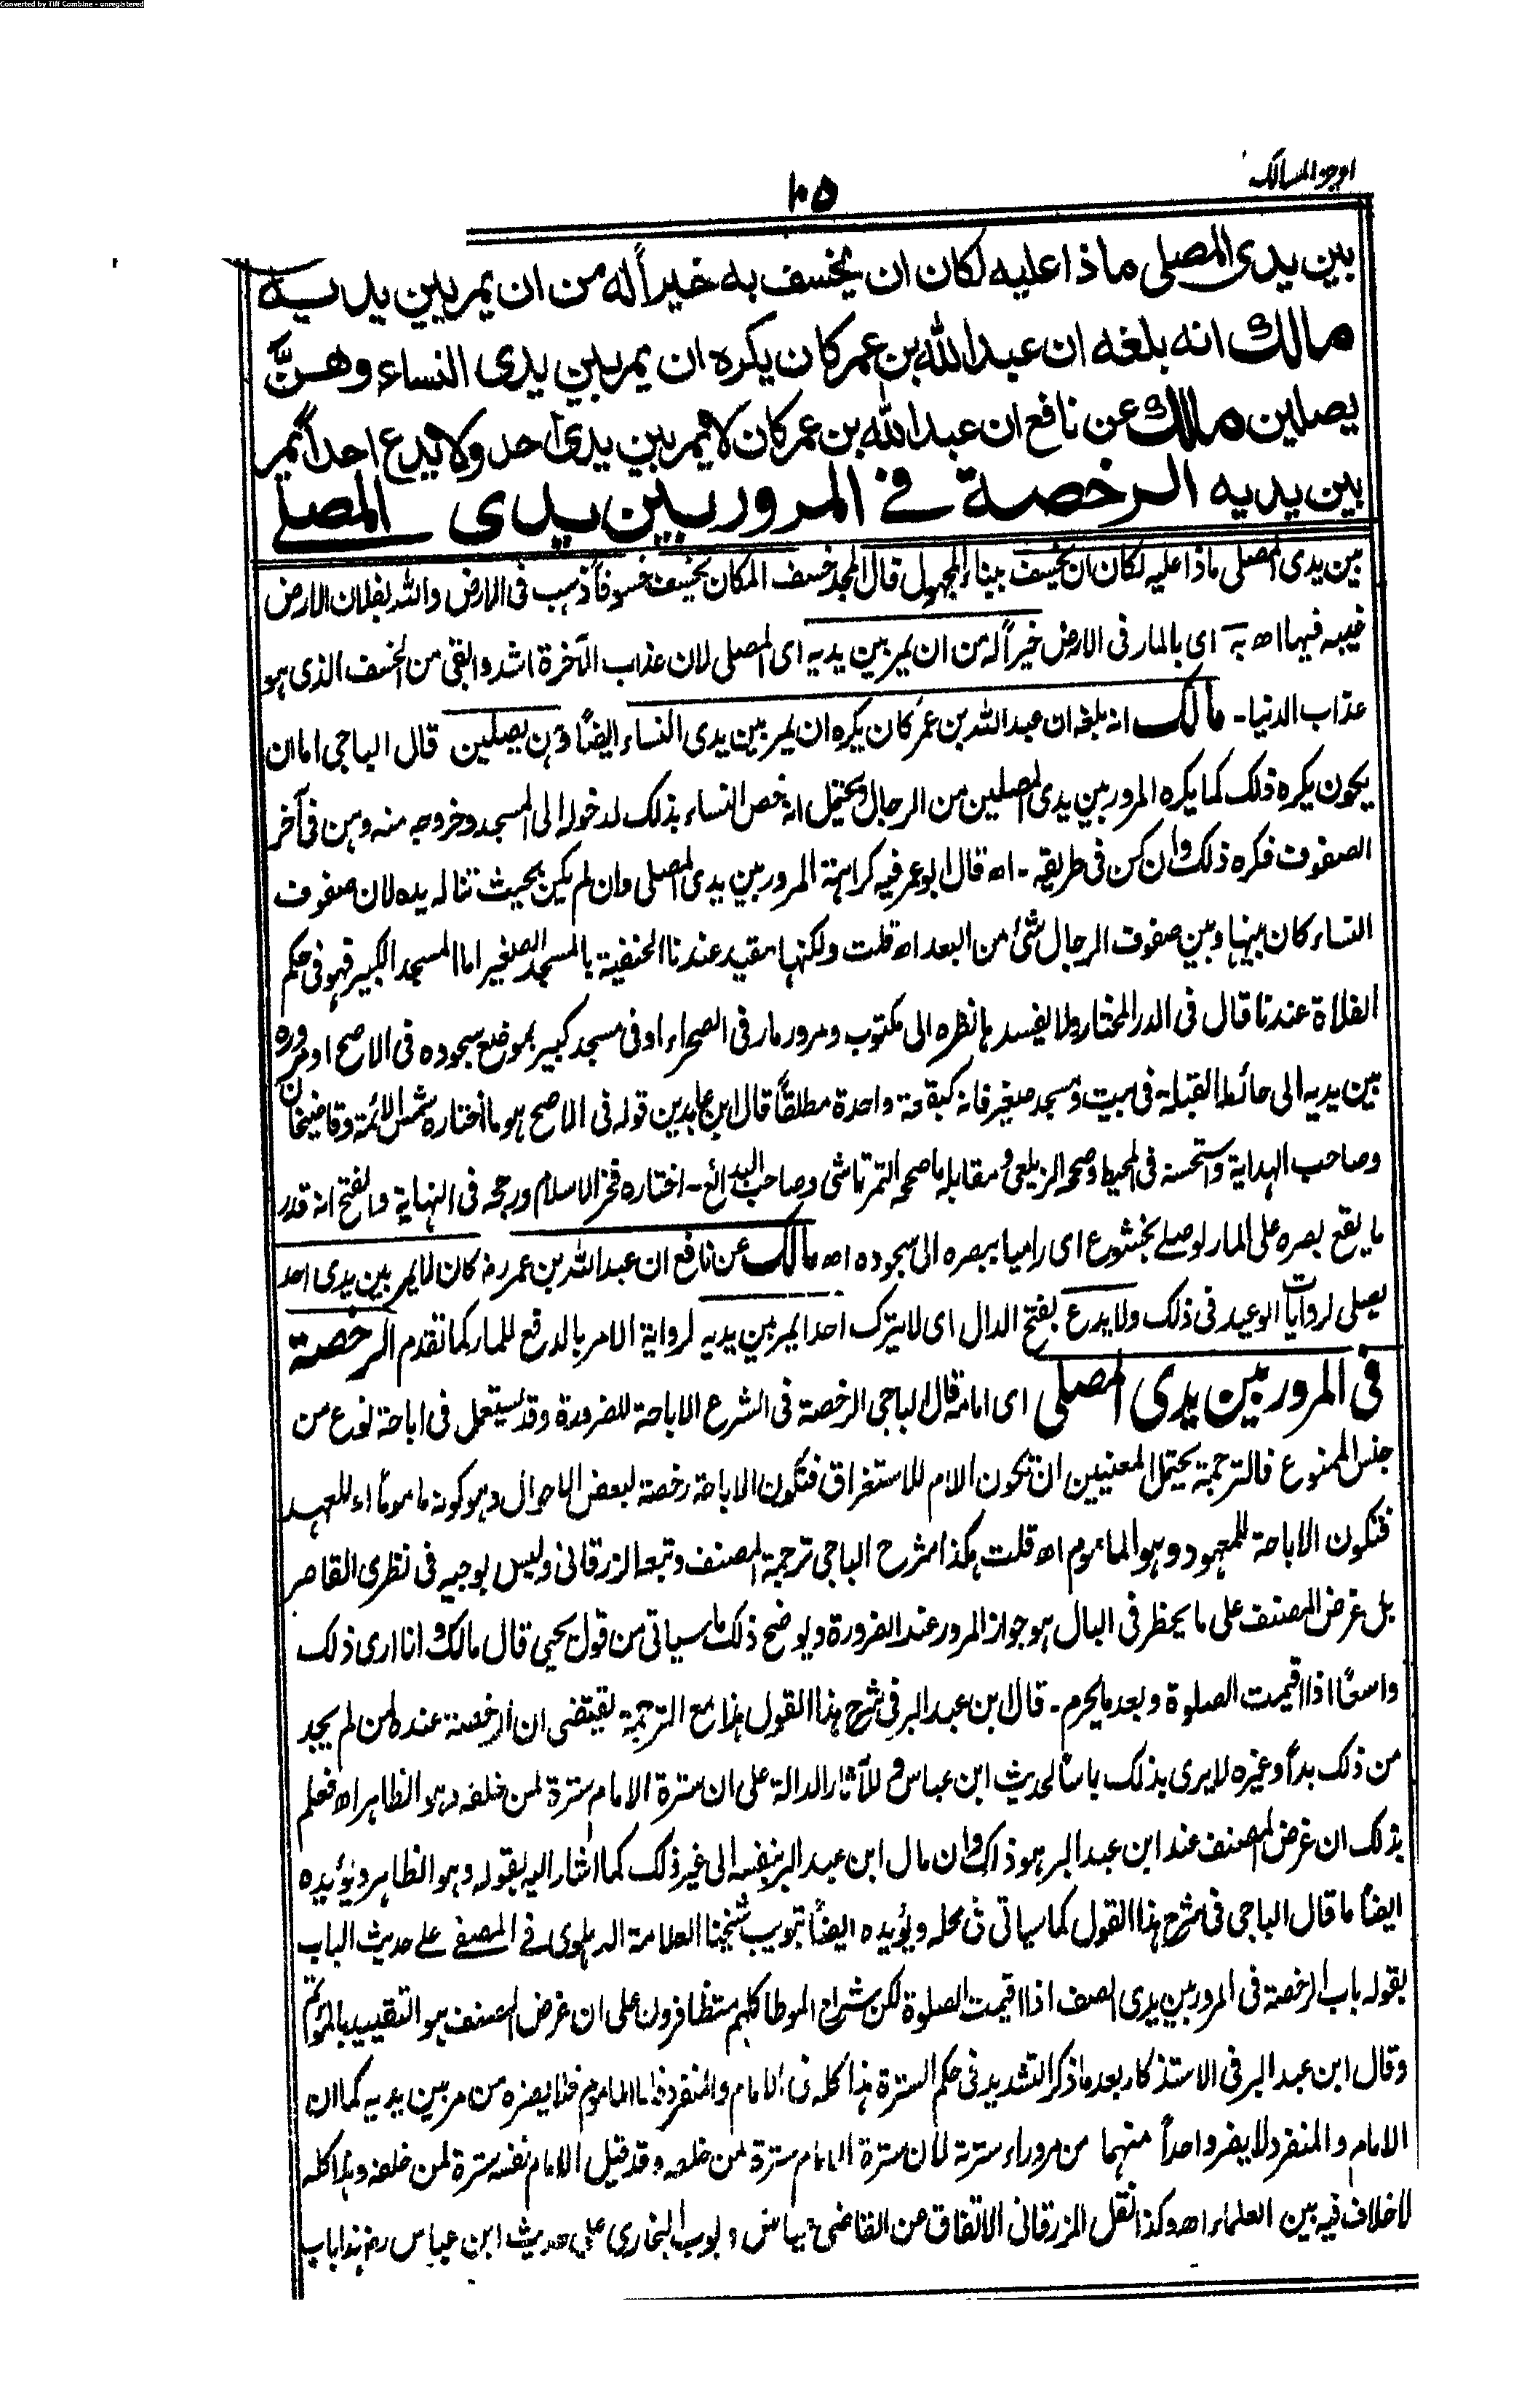 Converted by Tiff Combine - unregistered
اوجز المسالك
١٠٥
بين يدى المصلى ماذا عليه لكان ان يخسف به خيراً له من ان يمر بين يديه
مالك انه بلغه ان عبد الله بن عمر كان يكره ان يمر بين يدى النساء وهنَّ
يصلين مالك عن نافع ان عبد الله بن عمر كان لا يمر بين يدى احد ولا يدع احداً يمر
بين يديه الرخصة فى المرور بين يدى المصلى
بين يدى المصلى ماذا عليه لكان ان يخسف ببناء المجهول قال المجد خسف المكان يخسف خسوفاً ذهب فى الارض والله بفلان الارض
غيبه فيها اھ به اى بالمار فى الارض خيراً له من ان يمر بين يديه اى المصلى لان عذاب الآخرة اشد وابقى من الخسف الذى هو
عذاب الدنيا۔ مالك انه بلغه ان عبد الله بن عمر كان يكره ان يمر بين يدى النساء ايضاً وهن يصلين قال الباجى اما ان
يكون يكره ذلك كما يكره المرور بين يدى المصلين من الرجال ويحتمل انه خص النساء بذلك لدخوله الى المسجد وخروجه منه وهن فى آخر
الصفوف فكره ذلك وان كن فى طريقه ۔ اھ قال ابو عمر فيه كراهة المرور بين يدى المصلى وان لم يكن بحيث تناله يده لان صفوف
النساء كان بينها وبين صفوف الرجال شئ من البعد اھ قلت ولكنها مقيد عندنا الحنفية بالمسجد الصغير اما المسجد الكبير فهو فى حكم
الفلاة عندنا قال فى الدر المختار ولا يفسدها نظره الى مكتوب ومرور مار فى الصحراء او فى مسجد كبير بموضع سجوده فى الاصح او مروره
بين يديه الى حائط القبلة فى بيت ومسجد صغير فانه كبقعة واحدة مطلقاً قال ابن عابدين قوله فى الاصح هو ما اختاره شمس الائمة وقاضيخان
وصاحب الهداية واستحسنه فى المحيط وصححه الزيلعى ومقابله ما صححه التمرتاشى وصاحب البدائع۔ اختاره فخر الاسلام ورجحه فى النهاية والفتح انه قدر
ما يقع بصره على المار لو صلى بخشوع اى راميا ببصره الى سجوده اھ مالك عن نافع ان عبد الله بن عمر رض كان لا يمر بين يدى احد
يصلى لروايات الوعيد فى ذلك ولا يدع بفتح الدال اى لا يترك احدا يمر بين يديه لرواية الامر بالدفع للمار كما تقدم الرخصة
فى المرور بين يدى المصلى اى امامه قال الباجى الرخصة فى الشرع الاباحة للضرورة وقد يستعمل فى اباحة نوع من
جنس الممنوع فالترجمة يحتمل المعنيين ان تكون اللام للاستغراق فتكون الاباحة رخصة لبعض الاحوال وهو كونه ماموماً او للعهد
فتكون الاباحة للمعهود وهو الماموم اھ قلت هكذا شرح الباجى ترجمة المصنف وتبعه الزرقانى وليس بوجيه فى نظرى القاصر
بل غرض المصنف على ما يخطر فى البال هو جواز المرور عند الضرورة ويوضح ذلك ما سياتى من قول يحيى قال مالك وانا ارى ذلك
واسعًا اذا اقيمت الصلوة وبعد ما يحرم ۔ قال ابن عبد البر فى شرح هذا القول هذا مع الترجمة يقتضى ان الرخصة عنده لمن لم يجد
من ذلك بداً وغيره لا يرى بذلك باساً لحديث ابن عباس و للآثار الدالة على ان سترة الامام سترة لمن خلفه وهو الظاهر اھ فعلم
بذلك ان غرض المصنف عند ابن عبد البر هو ذلك وان مال ابن عبد البر بنفسه الى غير ذلك كما اشار اليه بقوله وهو الظاهر ويؤيده
ايضاً ما قال الباجى فى شرح هذا القول كما سياتى فى محله ويؤيده ايضاً تبويب شيخنا العلامة الدهلوى فى المصفى على حديث الباب
بقوله باب الرخصة فى المرور بين يدى الصف اذا اقيمت الصلوة لكن شراح الموطا كلهم متظافرون على ان غرض المصنف هو التقييد بالمؤتم
وقال ابن عبد البر فى الاستذكار بعد ما ذكر التشديد فى حكم السترة هذا كله فى الامام والمنفرد فاما الماموم فلا يضره من مر بين يديه كما ان
الامام والمنفرد لا يضر واحداً منهما من مر وراء سترته لان سترة الامام سترة لمن خلفه وقد قيل الامام نفسه سترة لمن خلفه وهذا كله
لا خلاف فيه بين العلماء اھ وكذا نقل الزرقانى الاتفاق عن القاضى عياض وبوب البخارى على حديث ابن عباس رض هذا باب